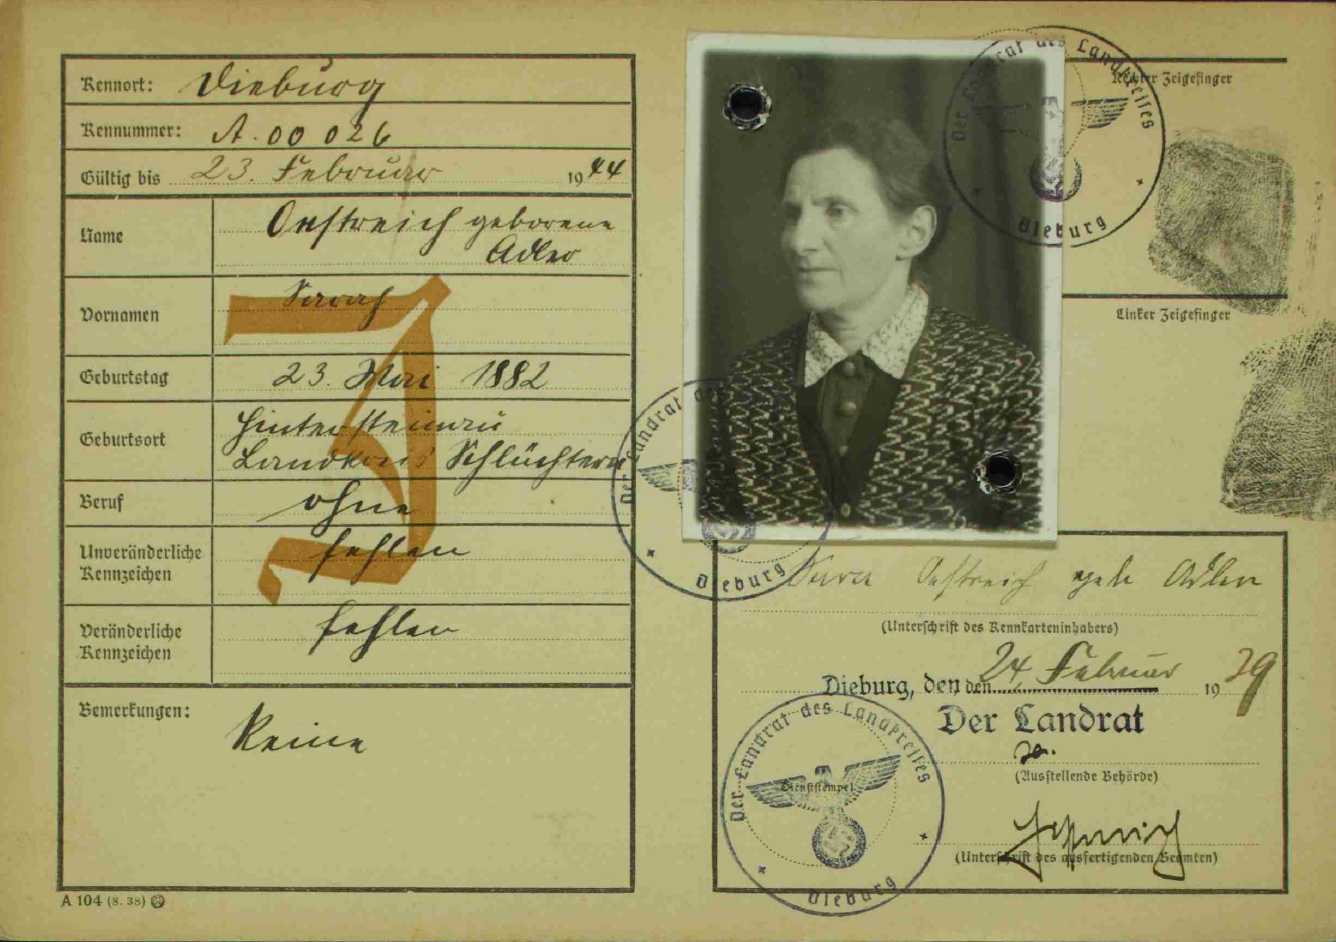 Kennort: Dieburg
Kennummer: A. 00 026
Gültig bis 23. Februar 1944
Name Oestreich geborene
Adler
Vornamen Sarah
J
Geburtstag 23. Mai 1882
Geburtsort Hintersteinau
Landkreis Schlüchtern
Beruf ohne
Unveränderliche
Kennzeichen fehlen
Veränderliche
Kennzeichen fehlen
Bemerkungen: Keine
A 104 (8. 38)
Der Landrat des Landkreises
Dieburg
Rechter Zeigefinger
Linker Zeigefinger
Der Landrat
Dieburg
Sara Oestreich geb Adler
(Unterschrift des Kennkarteninhabers)
Dieburg, den den 24 Februar 1939
Der Landrat
(Ausstellende Behörde)
Der Landrat des Landkreises
Dienststempel
Dieburg
(Unterschrift des ausfertigenden Beamten)